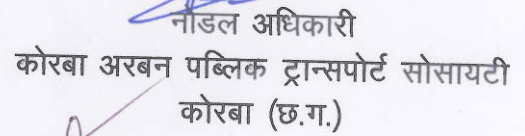 नोडल अधिकारी
कोरबा अरबन पब्लिक ट्रान्सपोर्ट सोसायटी
कोरबा (छ.ग.)